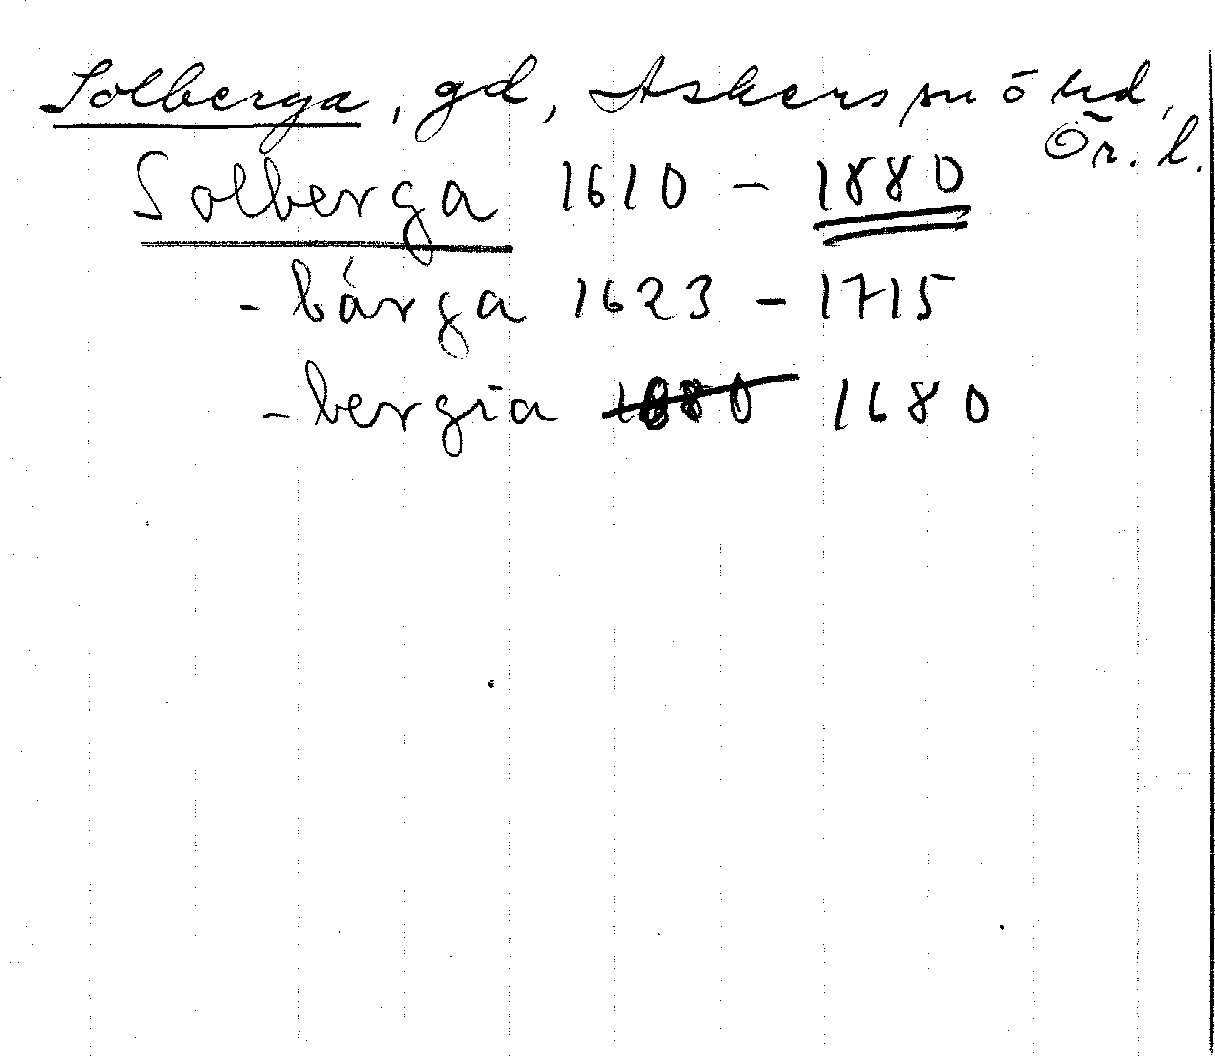 Solberga, gd, Askers sn ö hd,
Ör. l.
Solberga 1610 – 1880
– bärga 1623 – 1715
– bergia 1680